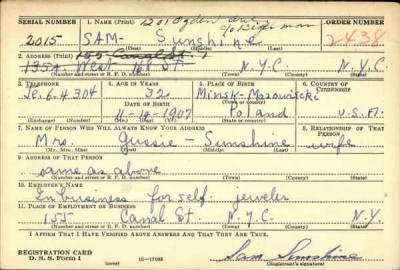 SERIAL NUMBER 1. NAME (Print) 1201 Ogden ave ORDER NUMBER
2015 SAM- Sunshine 2438
(First) (Middle) (Last)
2. ADDRESS (Print) 155 Canal St.
1354 West St. N.Y.C. N.Y.C.
(Number and street or R. F. D. number) (Town) (County) (State)
3. TELEPHONE 4. AGE IN YEARS 5. PLACE OF BIRTH 6. COUNTRY OF CITIZENSHIP
Je. 6.4304 32 Minsk-Mazowiecki
DATE OF BIRTH Poland U.S.A.
11-14-1907
(Mo.) (Day) (Yr.) (State or country)
7. NAME OF PERSON WHO WILL ALWAYS KNOW YOUR ADDRESS 8. RELATIONSHIP OF THAT PERSON
Mrs. Gussie - Sunshine wife
(Mr., Mrs., Miss) (First) (Middle) (Last)
9. ADDRESS OF THAT PERSON
same as above
(Number and street or R. F. D. number) (Town) (County) (State)
10. EMPLOYER'S NAME
In business for self. jeweler
11. PLACE OF EMPLOYMENT OR BUSINESS
155 Canal St. N.Y.C. N.Y.
(Number and street or R. F. D. number) (Town) (County) (State)
I AFFIRM THAT I HAVE VERIFIED ABOVE ANSWERS AND THAT THEY ARE TRUE.
REGISTRATION CARD Sam Sunshine
D. S. S. Form 1 (over) 16-17105 (Registrant's signature)